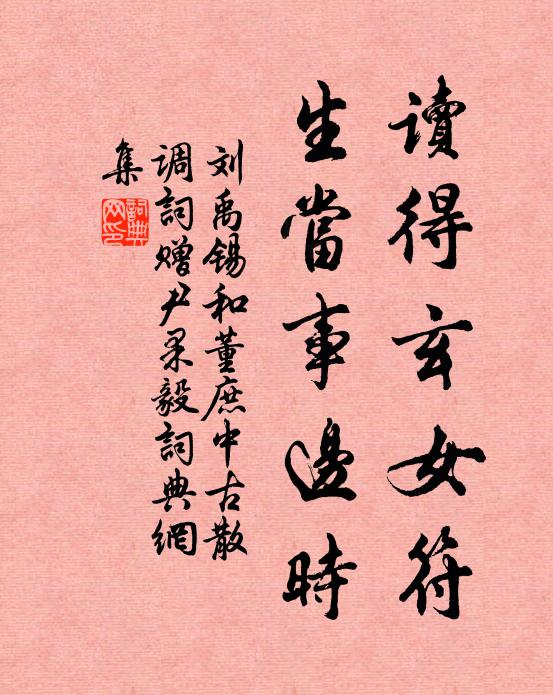 讀得玄女符
生當事邊時
刘禹锡和董庶中古散
调詞赠尹果毅詞典網
集
詞典
网印